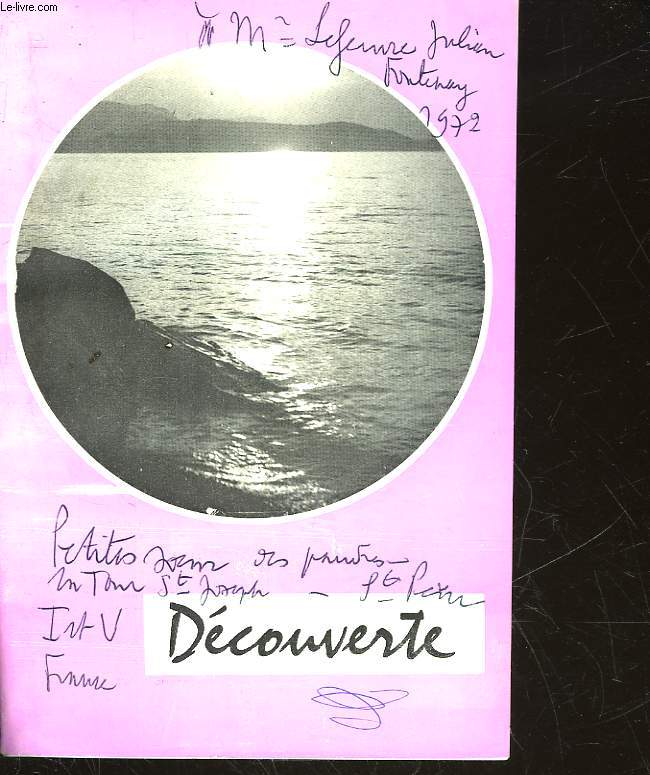 Le-livre.com
à Mr Lefeuvre Julien
Fontenay
1972
Petites soeurs des pauvres -
La Tour St Joseph - St Pern
I et V
Découverte
France